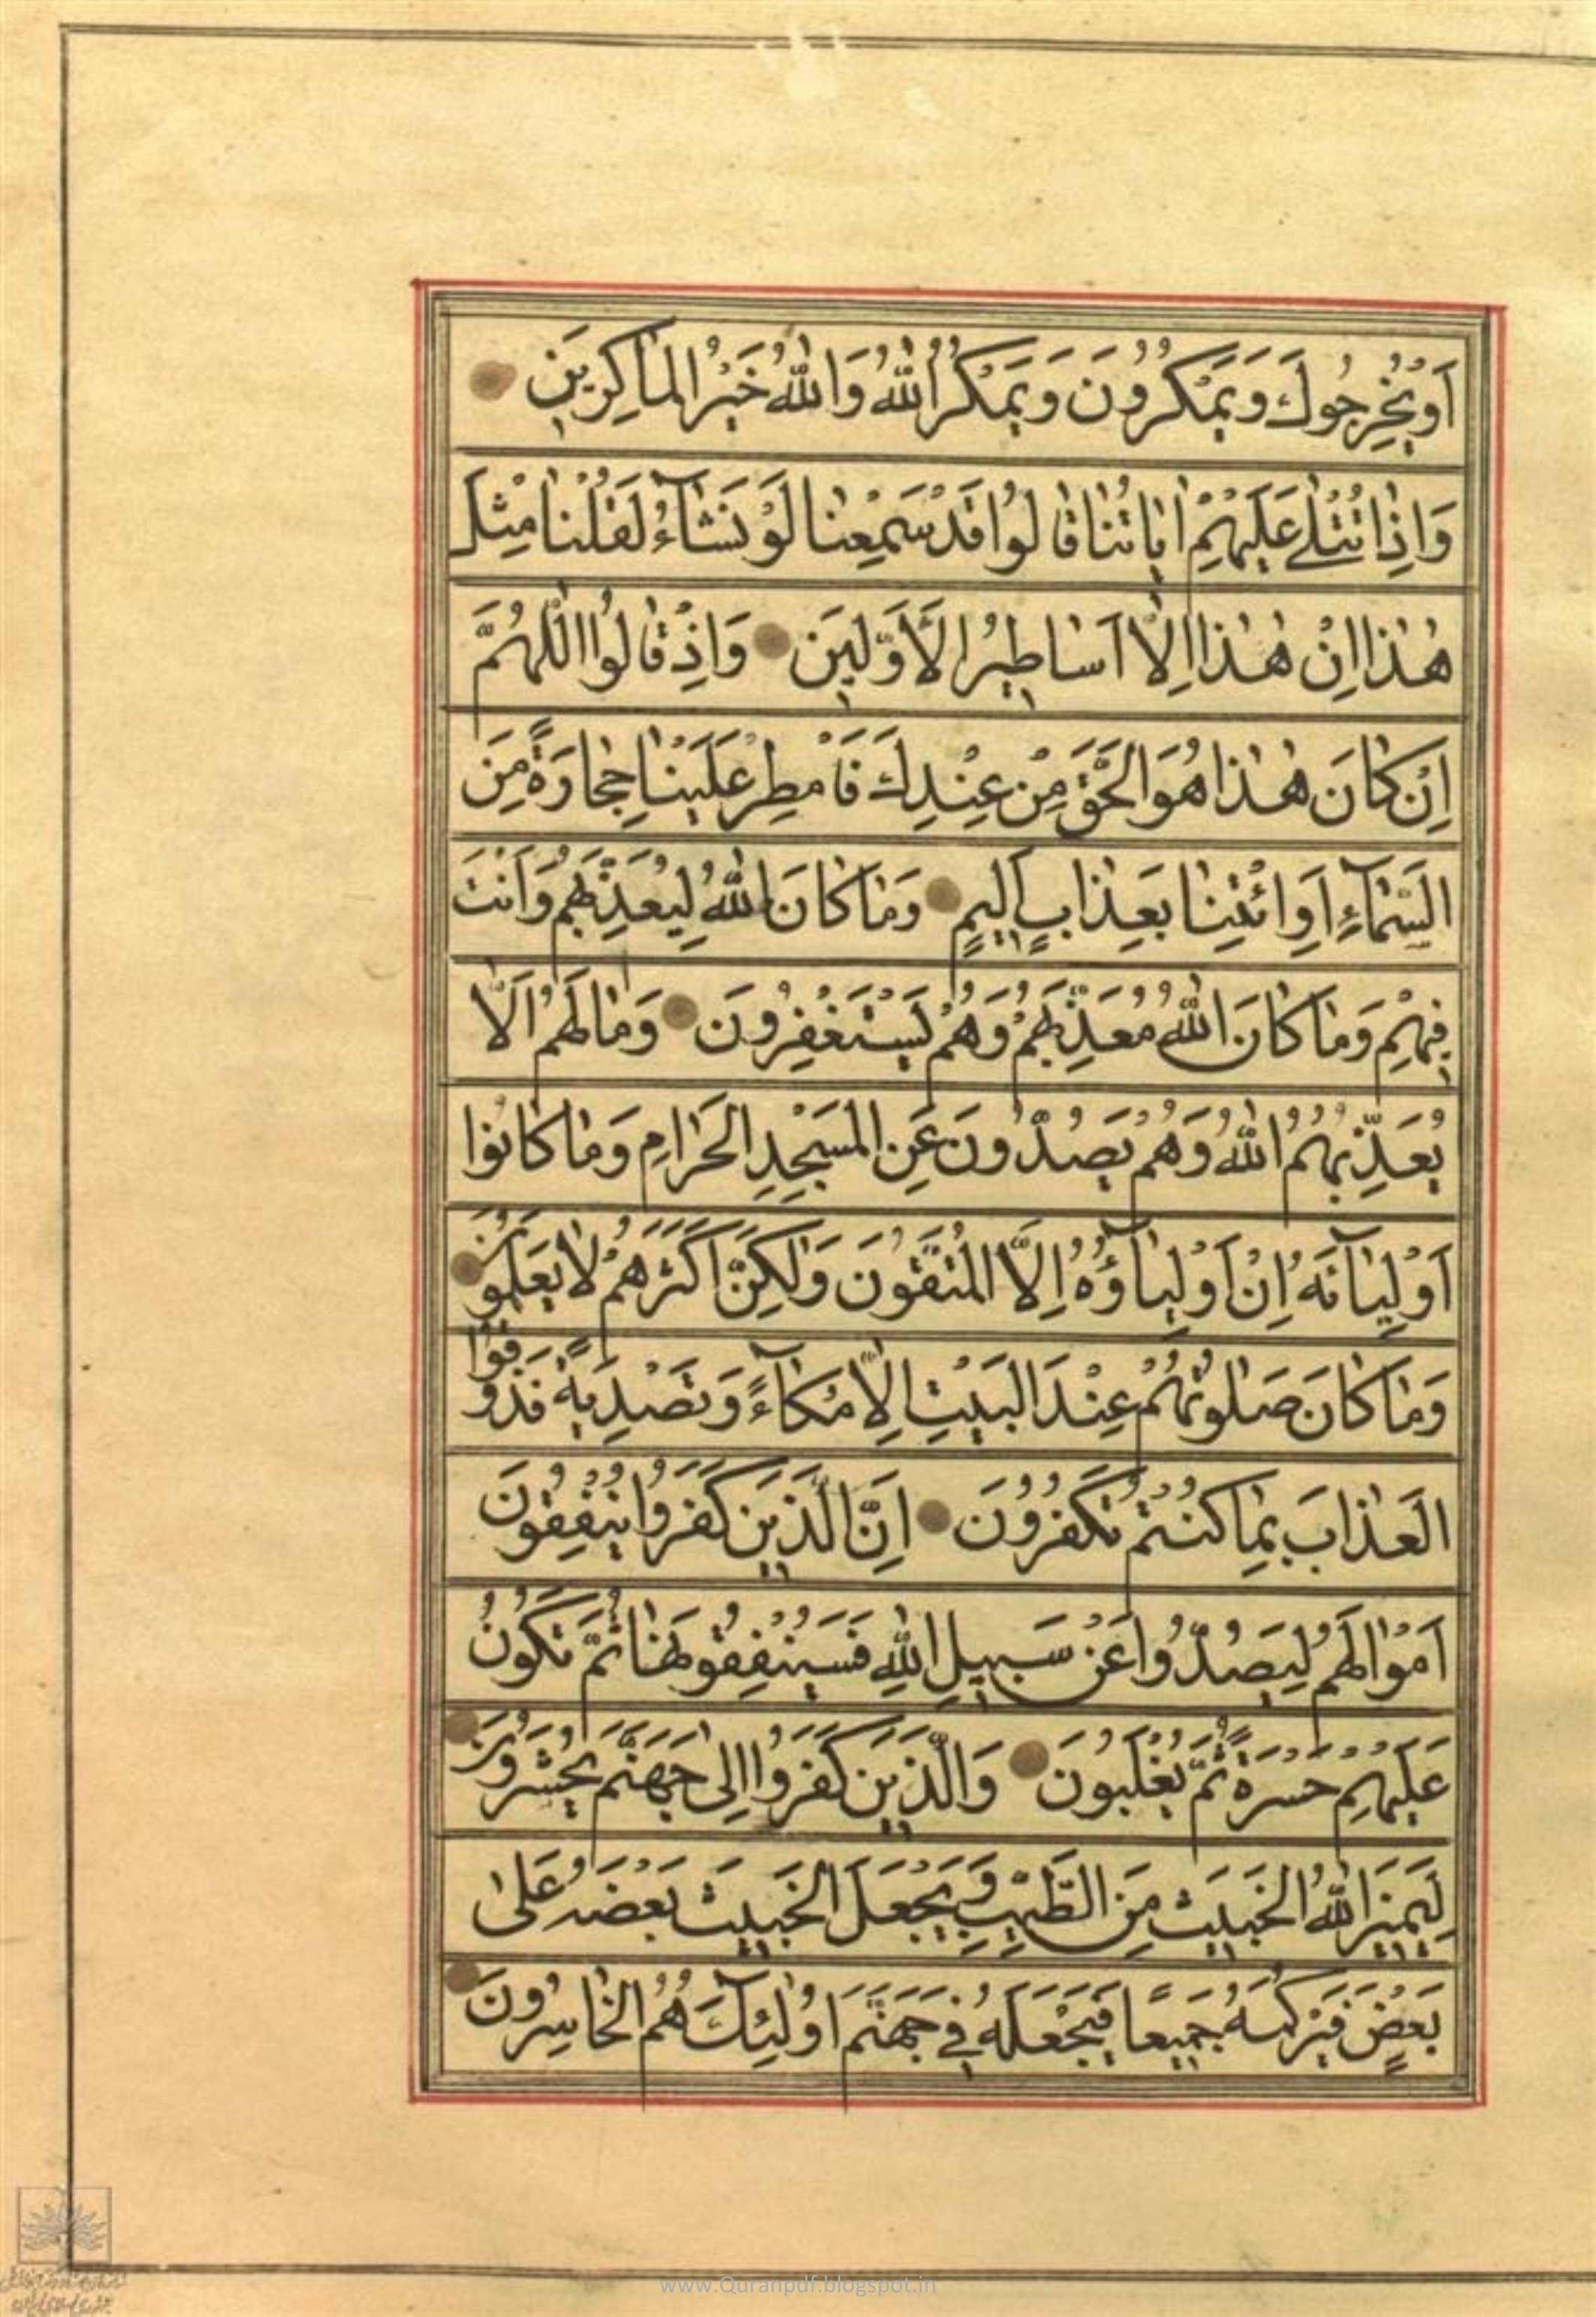 اَوْ يُخْرِجُوكَ وَيَمْكُرُونَ وَيَمْكُرُ اللّٰهُ وَاللّٰهُ خَيْرُ الْمٰاكِرِينَ
وَاِذٰا تُتْلىٰ عَلَيْهِمْ اٰيٰاتُنٰا قٰالُوا قَدْ سَمِعْنٰا لَوْ نَشٰآءُ لَقُلْنٰا مِثْلَ
هٰذٰا اِنْ هٰذٰا اِلّٰا اَسٰاطِيرُ الْاَوَّلِينَ وَاِذْ قٰالُوا اللّٰهُمَّ
اِنْ كٰانَ هٰذٰا هُوَ الْحَقَّ مِنْ عِنْدِكَ فَاَمْطِرْ عَلَيْنٰا حِجٰارَةً مِنَ
السَّمٰآءِ اَوِ ائْتِنٰا بِعَذٰابٍ اَلِيمٍ وَمٰا كٰانَ اللّٰهُ لِيُعَذِّبَهُمْ وَاَنْتَ
فِيهِمْ وَمٰا كٰانَ اللّٰهُ مُعَذِّبَهُمْ وَهُمْ يَسْتَغْفِرُونَ وَمٰا لَهُمْ اَلّٰا
يُعَذِّبَهُمُ اللّٰهُ وَهُمْ يَصُدُّونَ عَنِ الْمَسْجِدِ الْحَرٰامِ وَمٰا كٰانُوا
اَوْلِيٰآءَهُ اِنْ اَوْلِيٰآؤُهُ اِلَّا الْمُتَّقُونَ وَلٰكِنَّ اَكْثَرَهُمْ لٰا يَعْلَمُونَ
وَمٰا كٰانَ صَلٰوتُهُمْ عِنْدَ الْبَيْتِ اِلّٰا مُكٰآءً وَتَصْدِيَةً فَذُوقُوا
الْعَذٰابَ بِمٰا كُنْتُمْ تَكْفُرُونَ اِنَّ الَّذِينَ كَفَرُوا يُنْفِقُونَ
اَمْوٰالَهُمْ لِيَصُدُّوا عَنْ سَبِيلِ اللّٰهِ فَسَيُنْفِقُونَهٰا ثُمَّ تَكُونُ
عَلَيْهِمْ حَسْرَةً ثُمَّ يُغْلَبُونَ وَالَّذِينَ كَفَرُوا اِلىٰ جَهَنَّمَ يُحْشَرُونَ
لِيَمِيزَ اللّٰهُ الْخَبِيثَ مِنَ الطَّيِّبِ وَيَجْعَلَ الْخَبِيثَ بَعْضَهُ عَلىٰ
بَعْضٍ فَيَرْكُمَهُ جَمِيعًا فَيَجْعَلَهُ فِي جَهَنَّمَ اُولٰئِكَ هُمُ الْخٰاسِرُونَ
www.Quranpdf.blogspot.in